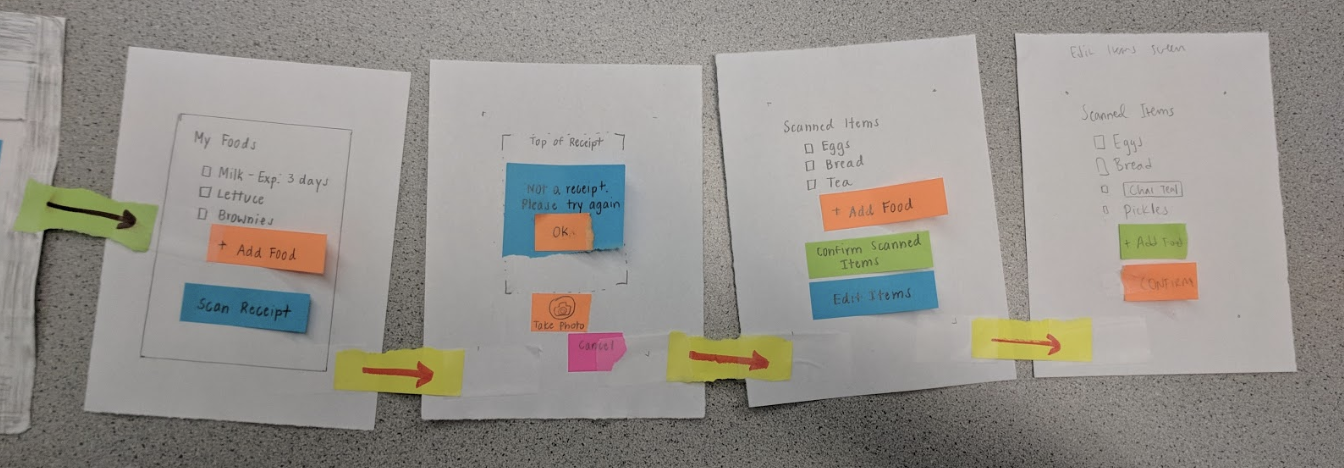 My Foods
Milk - Exp: 3 days
Lettuce
Brownies
+ Add Food
Scan Receipt
Top of Receipt
Not a receipt.
Please try again
OK
Take Photo
Cancel
Scanned Items
Eggs
Bread
Tea
+ Add Food
Confirm Scanned
Items
Edit Items
Edit Items Screen
Scanned Items
Eggs
Bread
Chai Tea
Pickles
+ Add Food
CONFIRM